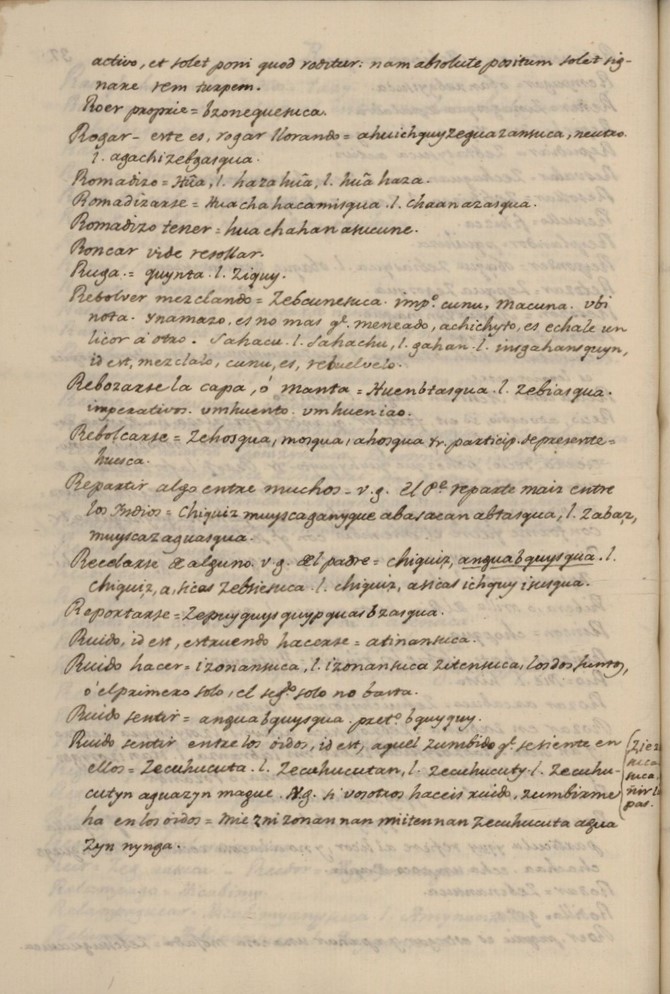 activo, et solet poni quod roditur: nam absolute positum solet sig-
nare rem turpem.
Roer proprie = bzonequesuca.
Rogar - este es, rogar llorando = ahuichquyzeguazansuca, neutro.
l. agachizebgasqua.
Romadizo = Hũa, l. hazahuã, l. huã haza.
Romadizarse = Huachahacamisqua. l. chaanazasqua.
Romadizo tener = huachahan asucune.
Roncar vide resollar.
Ruga. = quynta. l. ziquy.
Rebolver mezclando = Zebcunesuca. impo. cunu, macuna. ubi
nota. Ynamazo, es no mas q̃. meneado, achichyto, es echale un
licor a otro. Sahacu. l. Sahachu, l. gahan. l. insgahansquyn,
id est, mezclalo, cunu, es, rebuelvelo.
Rebozarse la capa, ó manta = Huenbtasqua. l. zebiasqua.
imperativos. umhuento. umhueniao.
Rebolcarse = Zehosqua, mosqua, ahosqua &. particip. de presente =
huesca.
Repartir algo entre muchos = v.g. El Pe. reparte maiz entre
los Yndios = Chiquiz muyscaganyque abasaean abtasqua, l. zabaz,
muyscazaguasqua.
Recelarse de alguno. v.g. del padre = chiquiz, anguabquysqua. l.
chiquiz, a, sicas zebsiesuca. l. chiquiz, asicas ichquy isusqua.
Reportarse = Zepuyquysquypquasbzasqua.
Ruido, id est, estruendo hacerse = atinansuca.
Ruido hacer = izonansuca, l. izonansuca zitensuca, los dos juntos,
ó el primero solo, el sego. solo no basta.
Ruido sentir = anguabquysqua. preto. bquyquy.
Ruido sentir entre los oidos, id est, aquel zumbido q̃. se siente en
ellos = Zecuhucuta. l. Zecuhucutan, l. zecuhucuty. l. Zecuhu-
cutyn aguazyn mague. V.g. si vosotros haceis ruido, zumbirme
ha en los oidos = mie zni zonan nan miitennan zecuhucuta agua
zyn nynga.
suca
suca
pas.